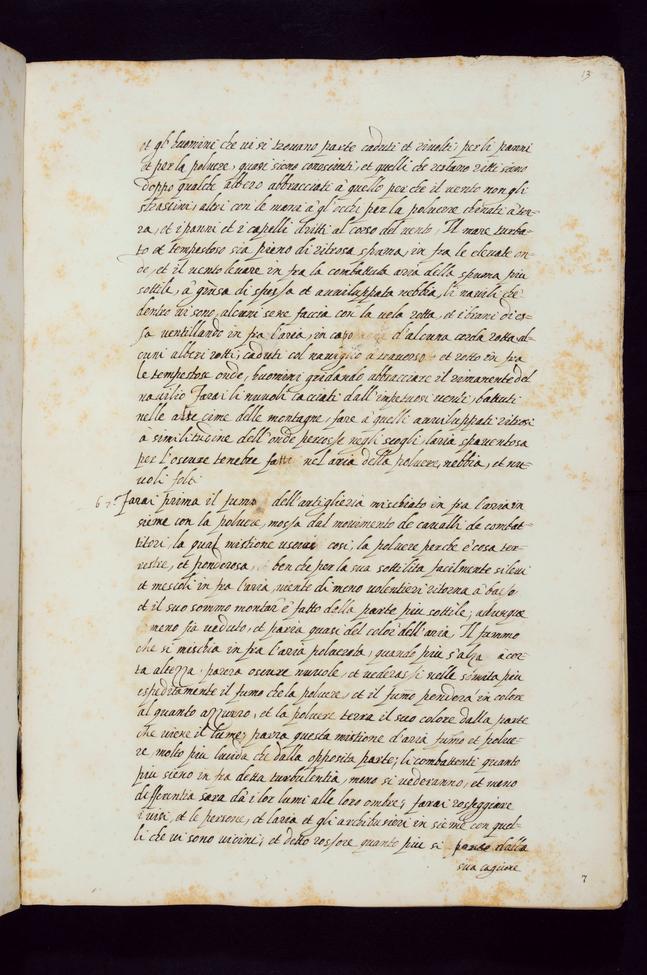 13
et gl'huomini che vi si trovano parte caduti et rivolti per li panni
et per la polvere, quasi sieno conosciuti, et quelli che restano ritti sieno
doppo qualche albero abbracciati à quello perche il vento non gli
strascini, altri con le mani à gl'occhi per la polvere chinati à ter-
ra, et i panni et i capelli dritti al corso del vento, Il mare turba-
to et tempestoso sia pieno di ritrosa spuma, in fra le elevate on-
de, et il vento levare in fra la combattuta aria della spuma piu
sottile, à guisa di spessa et avviluppata nebbia, li navili che
dentro vi sono, alcuni se ne faccia con la vela rotta, et i brani d'es-
sa ventillando in fra l'aria, in d'alcuna corda rotta, al-
cuni alberi rotti, caduti col naviglio à traverso et rotto in fra
le tempestose onde, huomini gridando abbracciare il rimanente del
navilio Farai li nuvoli cacciati dall'impetuosi venti, battuti
nelle alte cime delle montagne, fare à quelli avviluppati ritrosi
à similitudine dell'onde percosse negli scogli, l'aria spaventosa
per l'oscure tenebre fatti nel'aria della polvere, nebbia, et nu-
voli folti
67. Farai prima il fumo dell'artiglieria mischiato in fra l'aria in
sieme con la polvere, mossa dal movimento de cavalli de combat-
titori, la qual mistione userai così, la polvere perche è cosa ter-
restre, et ponderosa, ben che per la sua sottilita facilmente si levi
et mescoli in fra l'aria, niente di meno volentieri ritorna à basso
et il suo sommo montar è fatto della parte piu sottile, adunque
meno fia veduto, et parra quasi del color dell'aria, Il fummo
che si mischia in fra l'aria polverata, quando piu s'alza à cer-
ta altezza parera oscure nuvole, et vederassi nelle somità piu
espeditamente il fumo che la polvere, et il fumo pendera in colore
al quanto azzurro, et la polvere terra il suo colore dalla parte
che viene il lume, parra questa mistione d'aria fumo et polve-
re, molto piu lucida che dalla opposita parte, li combattenti quanto
piu sieno in fra detta turbulentia, meno si vederanno, et meno
differentia sara dà i lor lumi alle loro ombre, farai rosseggiare
i visi, et le persone, et l'aria et gli archibusieri in sieme con quel-
li che vi sono vicini, et detto rossore quanto piu si parte dalla
sua cagione
7